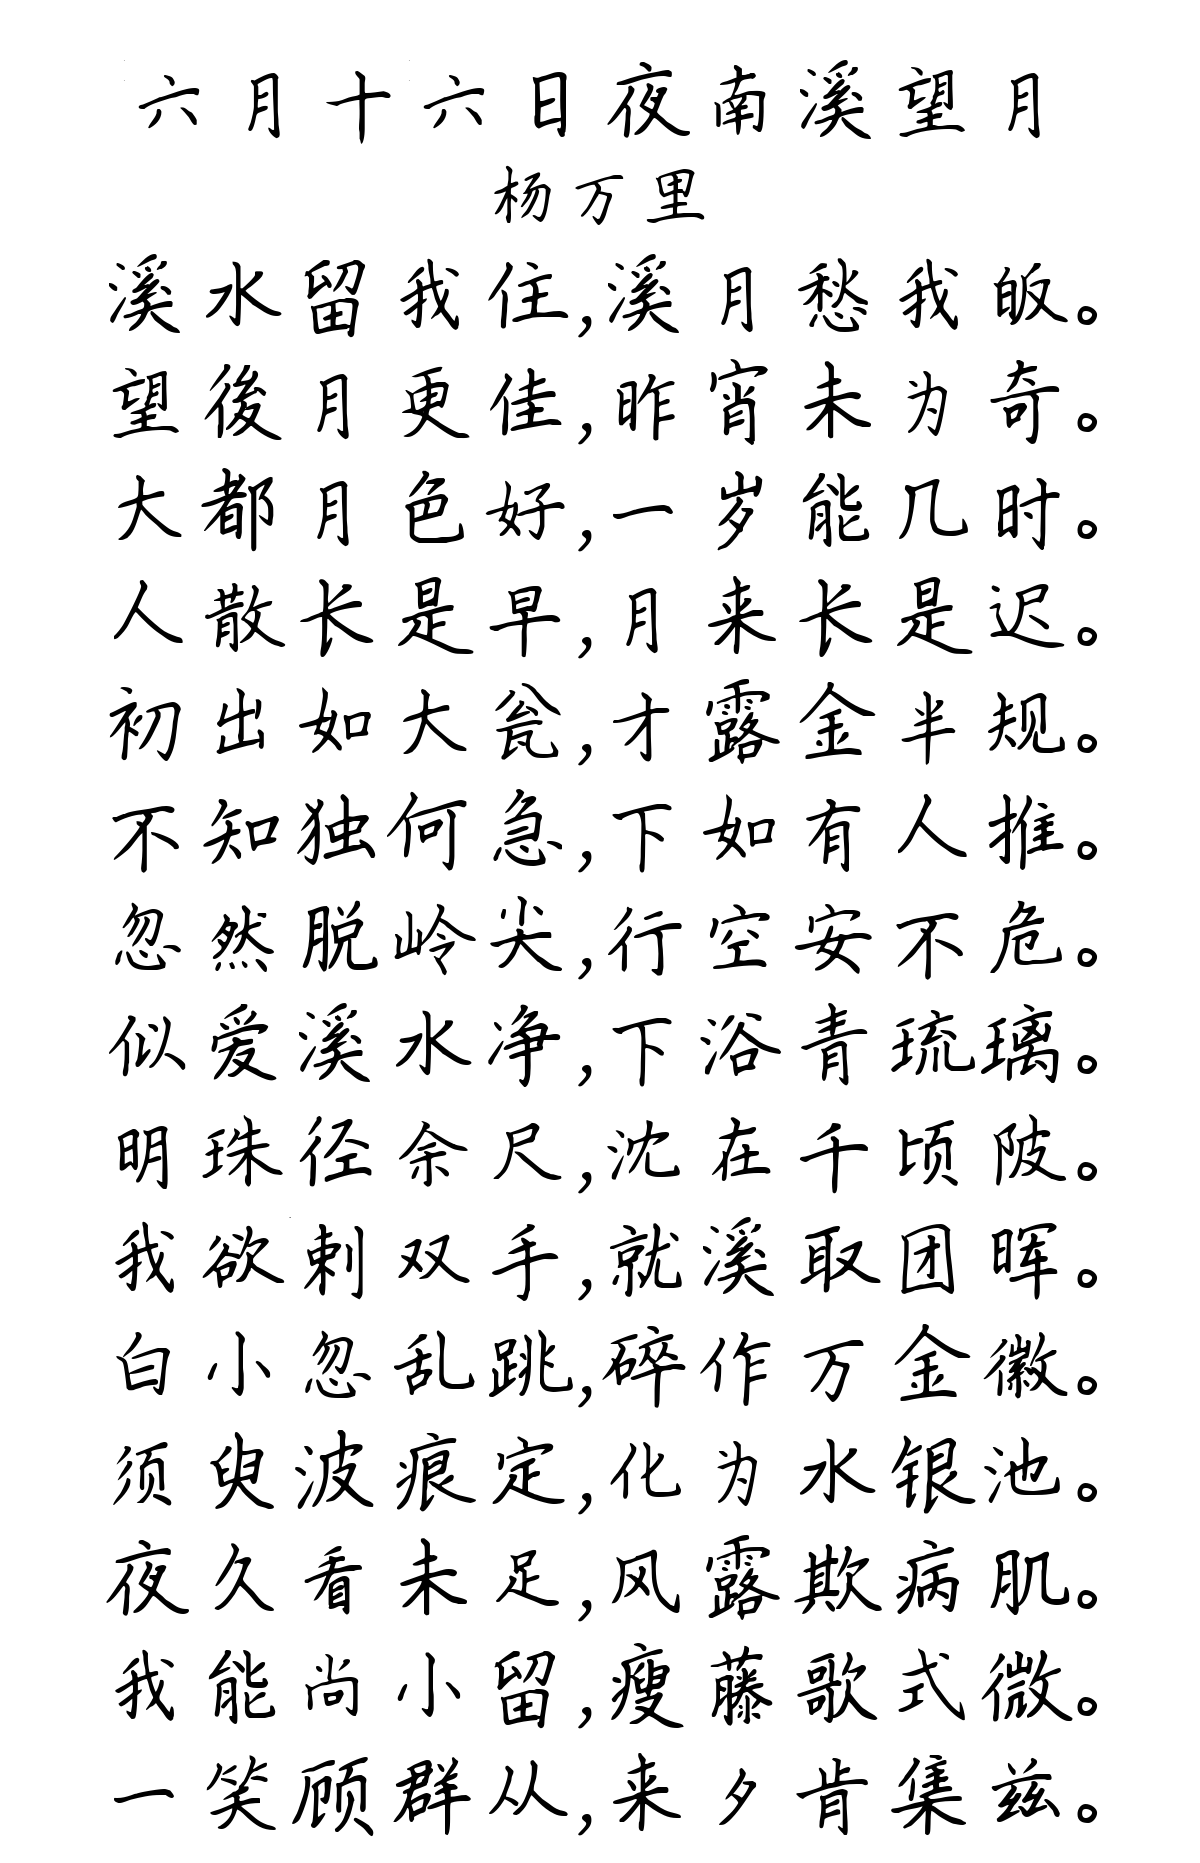 六月十六日夜南溪望月
杨万里
溪水留我住,溪月愁我皈。
望後月更佳,昨宵未为奇。
大都月色好,一岁能几时。
人散长是早,月来长是迟。
初出如大瓮,才露金半规。
不知独何急,下如有人推。
忽然脱岭尖,行空安不危。
似爱溪水净,下浴青琉璃。
明珠径余尺,沈在千顷陂。
我欲刺双手,就溪取团晖。
白小忽乱跳,碎作万金徽。
须臾波痕定,化为水银池。
夜久看未足,风露欺病肌。
我能尚小留,瘦藤歌式微。
一笑顾群从,来夕肯集兹。